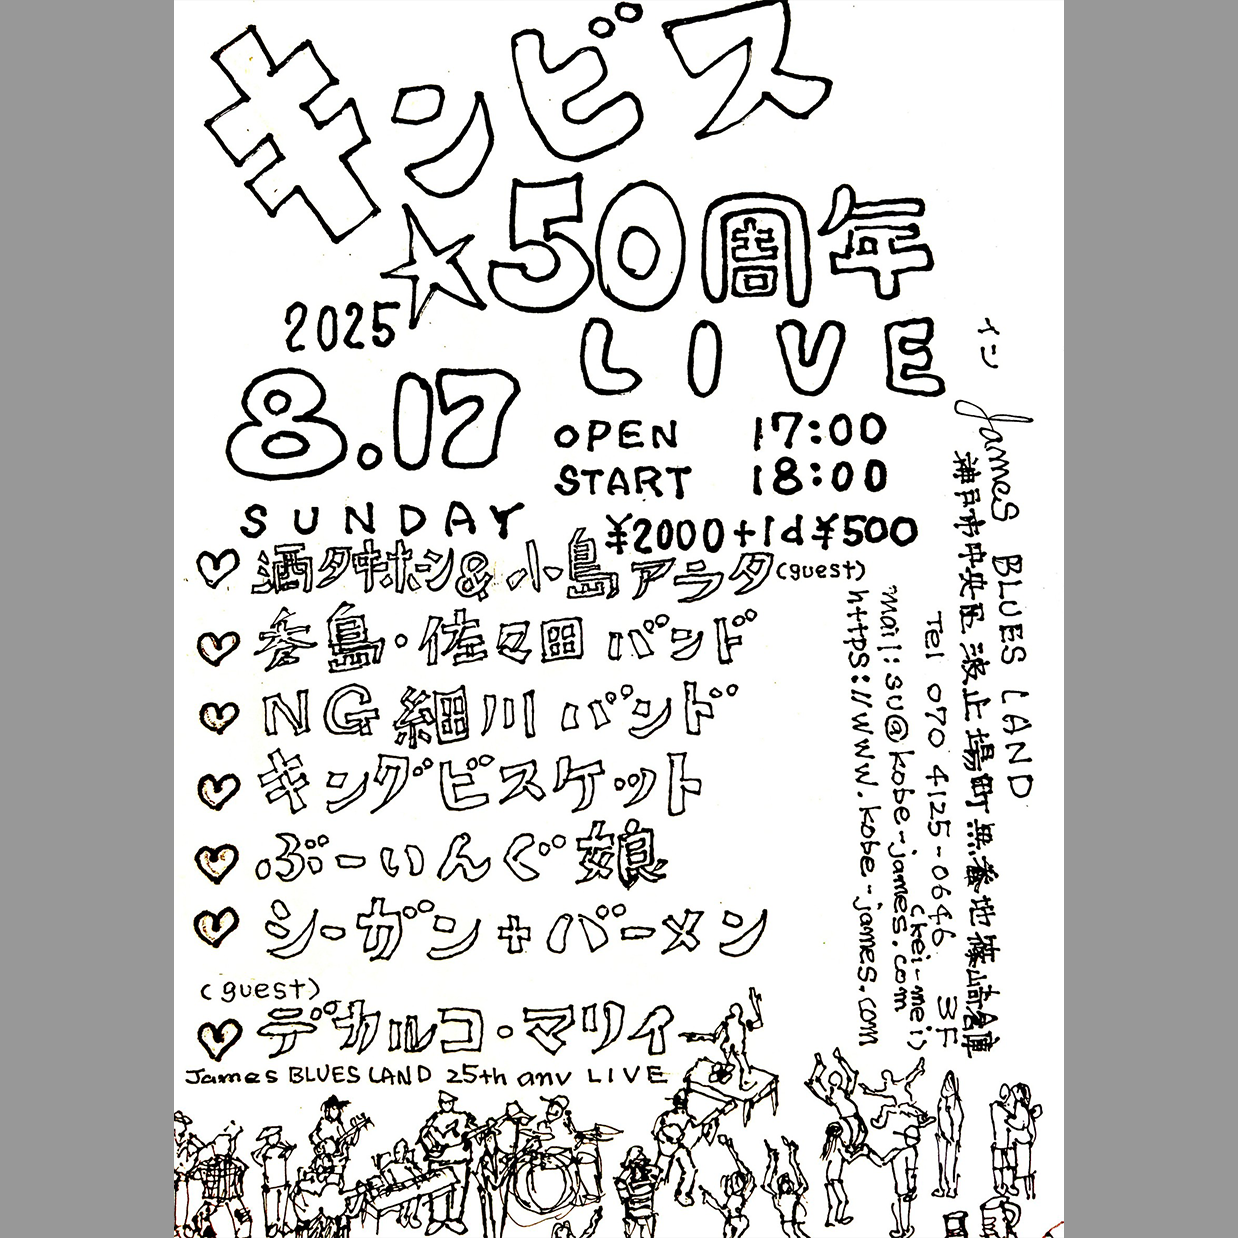 キンビス
☆50周年
LIVE
2025
8.17
SUNDAY
OPEN 17:00
START 18:00
¥2000+1d¥500
♡ 酒タキホーシ&小島アラタ(guest)
♡ 参島・佐々田バンド
♡ NG細川バンド
♡ キングビスケット
♡ ぶーいんぐ娘
♡ シーガン+バーメン
(guest)
♡ デカルコ・マリィ
James BLUES LAND 25th anv LIVE
イン
James BLUES LAND
神戸市中央区波止場町無番地篠崎倉庫
3F
Tel 070 4125-0646
(kei-mei)
mail:su@kobe-james.com
https://www.kobe-james.com